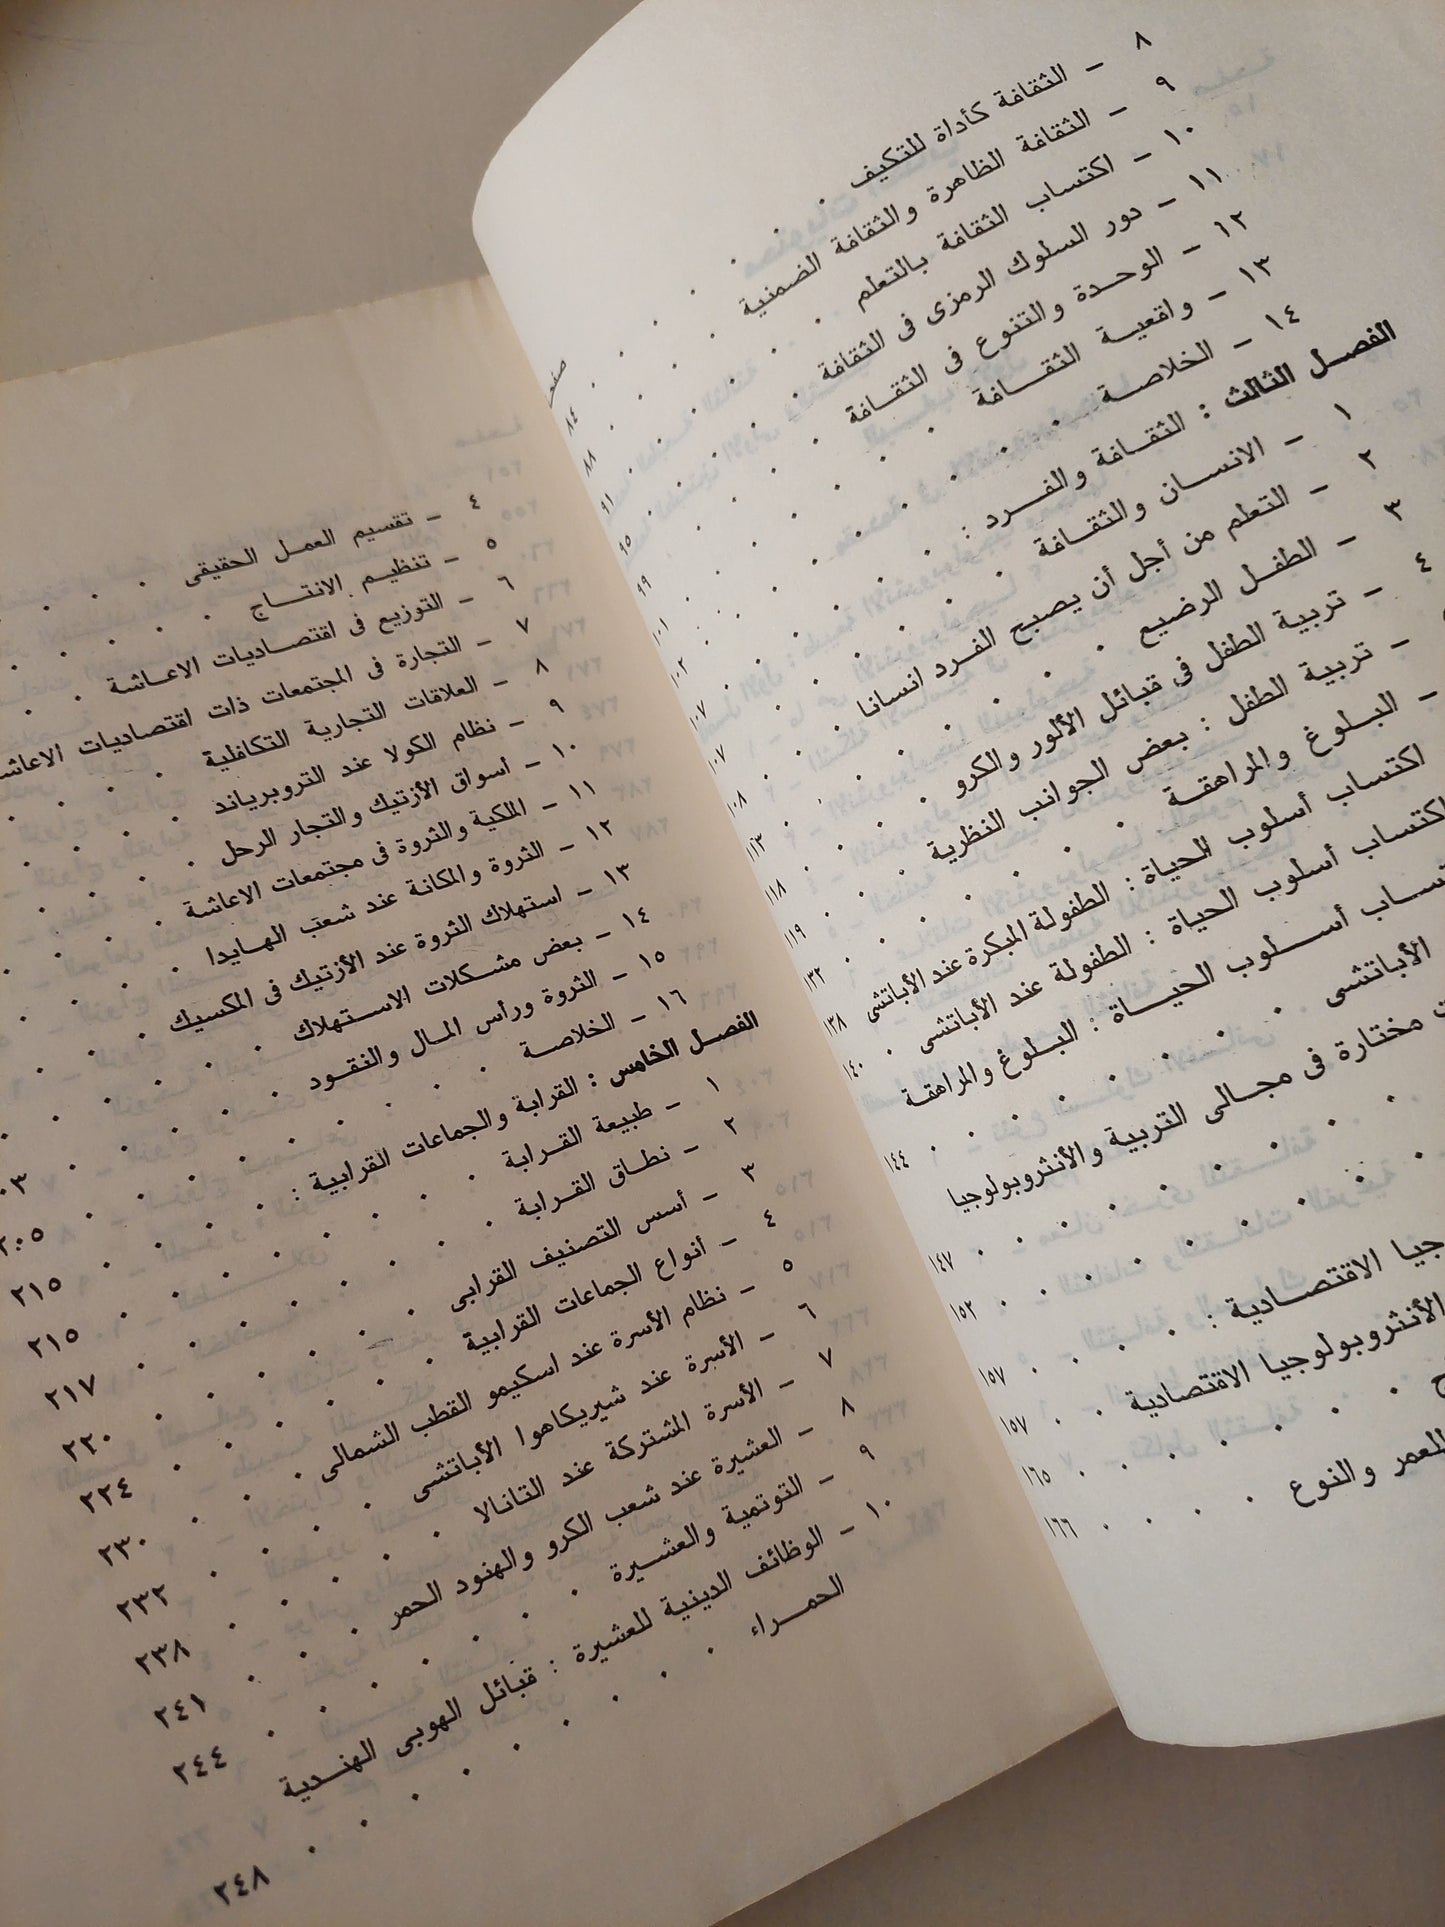 صفحة
٨ – الثقافة كأداة للتكيف . . . . . ٨٤
٩ – الثقافة الظاهرة والثقافة الضمنية . . . ٨٨
١٠ – اكتساب الثقافة بالتعلم . . . . ٩١
١١ – دور السلوك الرمزى فى الثقافة . . . ٩٥
١٢ – الوحدة والتنوع فى الثقافة . . . . ٩٩
١٣ – واقعية الثقافة . . . . . ١٠١
١٤ – الخلاصة . . . . . . ١٠٢
الفصل الثالث : الثقافة والفرد : . . . . ١٠٧
١ – الانسان والثقافة . . . . . ١٠٧
٢ – التعلم من أجل أن يصبح الفرد انسانا . . ١٠٨
٣ – الطفل الرضيع . . . . . ١١٣
٤ – تربية الطفل فى قبائل الألور والكرو . . . ١١٨
– تربية الطفل : بعض الجوانب النظرية . . . ١١٩
– البلوغ والمراهقة . . . . . ١٣٢
اكتساب أسلوب الحياة : الطفولة المبكرة عند الأباتشى ١٣٨
اكتساب أسلوب الحياة : الطفولة عند الأباتشى . ١٤٠
أسلوب الحياة : البلوغ والمراهقة
الأباتشى . . . . . . ١٤٤
مختارة فى مجالى التربية والأنثروبولوجيا
. . . . . . ١٤٧
. . . . . . ١٥٢
الاقتصادية : . . . . ١٥٧
الأنثروبولوجيا الاقتصادية . . ١٥٧
. . . . . . ١٦٥
والنوع . . . . ١٦٦
٤ – تقسيم العمل الحقيقى . . . .
٥ – تنظيم الانتاج . . . . .
٦ – التوزيع فى اقتصاديات الاعاشة . . .
٧ – التجارة فى المجتمعات ذات اقتصاديات
٨ – العلاقات التجارية التكافلية . . .
٩ – نظام الكولا عند التروبرياند . . .
١٠ – أسواق الأزتيك والتجار الرحل . . .
١١ – الملكية والثروة فى مجتمعات الاعاشة . . .
١٢ – الثروة والمكانة عند شعب الهايدا . . .
١٣ – استهلاك الثروة عند الأزتيك فى المكسيك . . .
١٤ – بعض مشكلات الاستهلاك . . . .
١٥ – الثروة ورأس المال والنقود . . . .
١٦ – الخلاصة . . . . . . ٢٠٥
الفصل الخامس : القرابة والجماعات القرابية : . . . ٢١٥
١ – طبيعة القرابة . . . . . ٢١٥
٢ – نطاق القرابة . . . . . ٢١٧
٣ – أسس التصنيف القرابى . . . . ٢٢٠
٤ – أنواع الجماعات القرابية . . . . ٢٢٤
٥ – نظام الأسرة عند اسكيمو القطب الشمالى . . ٢٣٠
٦ – الأسرة عند شيريكاهوا الأباتشى . . . ٢٣٢
٧ – الأسرة المشتركة عند التانالا . . . ٢٣٨
٨ – العشيرة عند شعب الكرو والهنود الحمر . . ٢٤١
٩ – التوتمية والعشيرة . . . . ٢٤٤
١٠ – الوظائف الدينية للعشيرة : قبائل الهوبى الهندية
الحمراء . . . . . . ٢٤٨